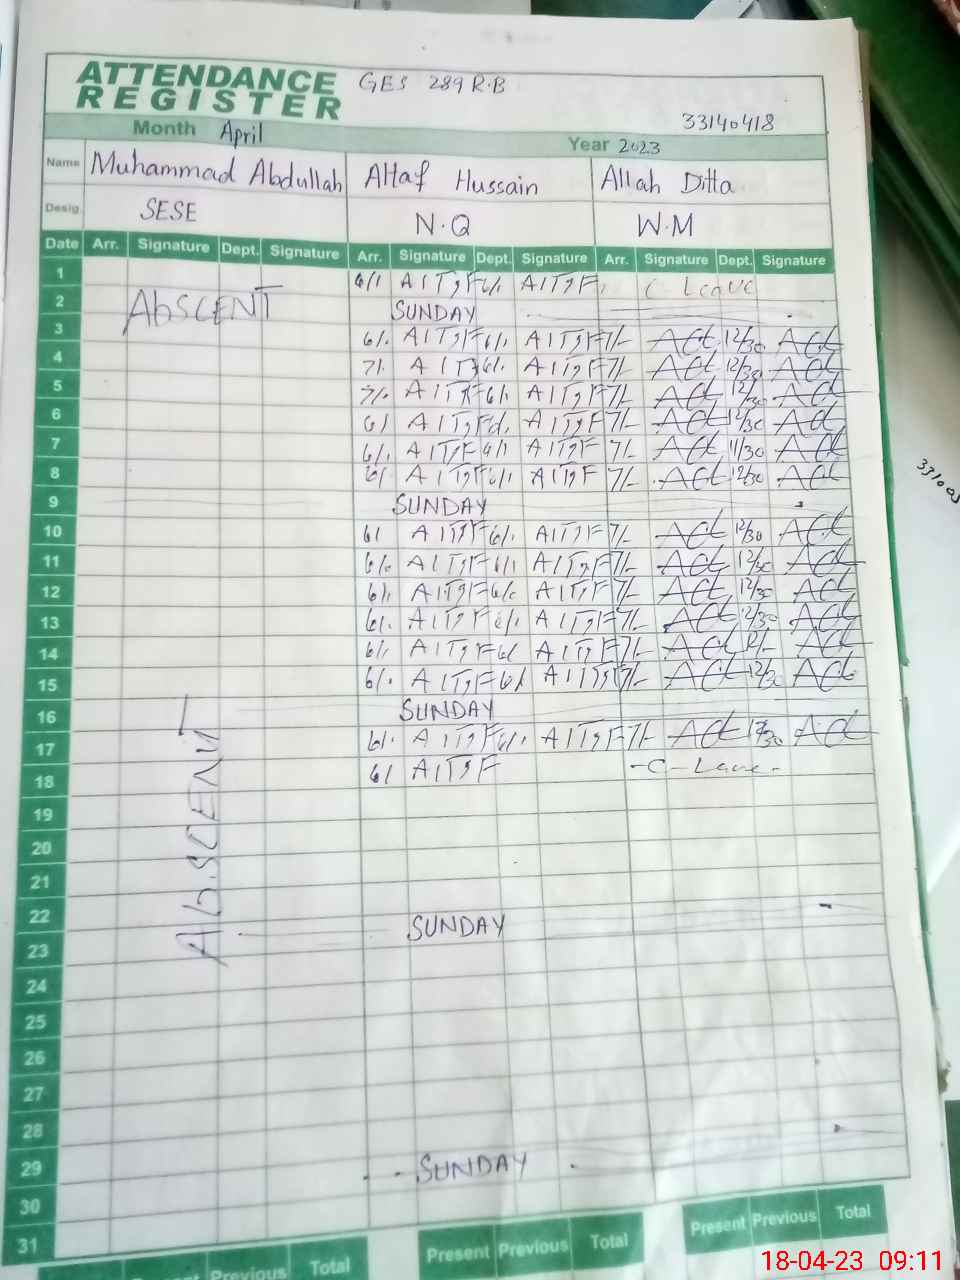 ATTENDANCE GES 289 R.B
REGISTER
33140418
Month April Year 2023
Name Muhammad Abdullah Altaf Hussain Allah Ditta
Desig. SESE N.Q W.M
Date Arr. Signature Dept. Signature Arr. Signature Dept. Signature Arr. Signature Dept. Signature
1 6/1 AITgF 6/1 AITgF C Leave
2 AbSCENT SUNDAY
3 6/. AITgF 6/. AITgF 7/- 12/30
4 7/. 6/. AITgF 7/- 12/30
5 7/. AITgF 6/. AITgF 7/- 12/30
6 6/ AITgF AITgF 7/- 12/30
7 6/. AITgF 6/1 AITgF 7/- 11/30
8 6/ AITgF 6/1 AITgF 7/- 12/30
9 SUNDAY
10 6/ AITgF 6/. AITgF 7/- 12/30
11 6/. AITgF 6/1 AITgF 7/- 12/30
12 6/. AITgF 6/. AITgF 7/- 12/30
13 6/. AITgF 6/. AITgF 7/- 12/30
14 6/. AITgF 6/ AITgF 7/-
15 6/. AITgF 6/1 7/- 12/30
16 SUNDAY
17 6/. AITgF 6/. AITgF 7/- 12/30
18 6/ AITgF -C-Leave-
19
20
21
22
23 SUNDAY
24
25
26
27
28
29 SUNDAY
30
31
AbSCENT
Present Previous Total Present Previous Total Present Previous Total
331001
18-04-23 09:11